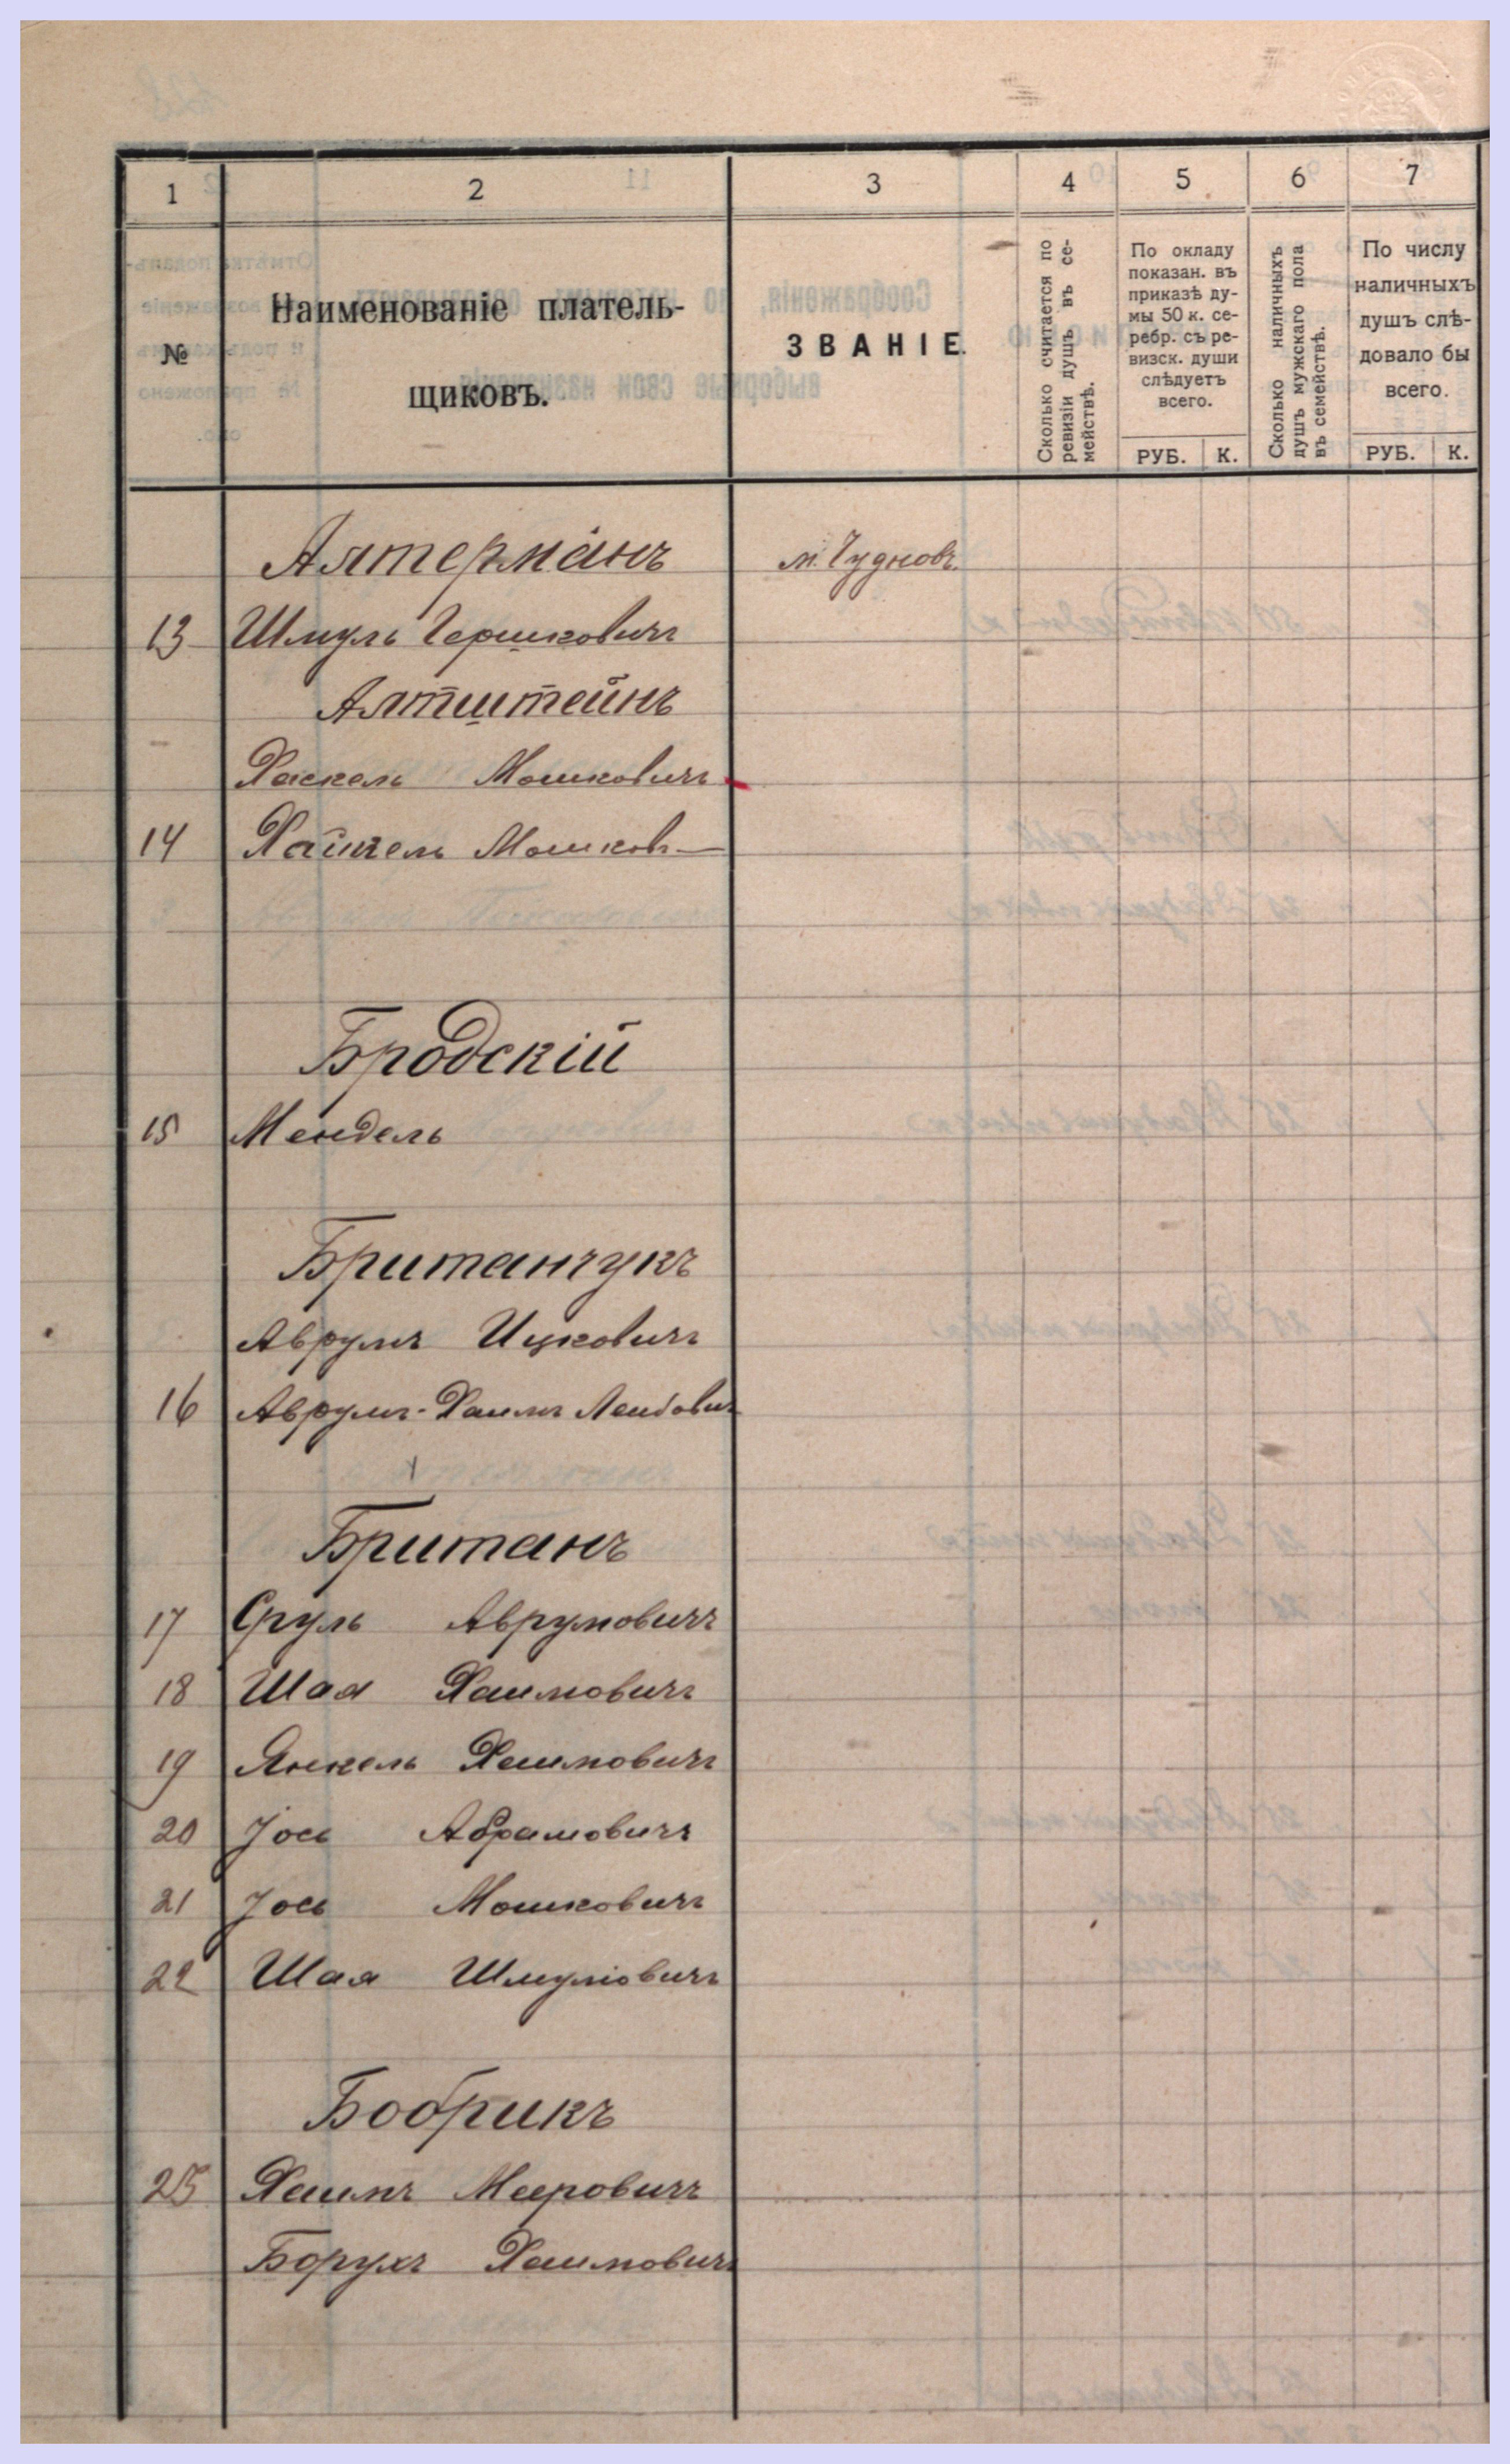 1 2 3 4 5 6 7
№
Наименованіе платель-
щиковъ.
ЗВАНІЕ.
Сколько считается по
ревизіи душъ въ се-
мействѣ.
По окладу
показан. въ
приказѣ ду-
мы 50 к. се-
ребр. съ ре-
визск. души
слѣдуетъ
всего.
РУБ. К.
Сколько наличныхъ
душъ мужскаго пола
въ семействѣ.
По числу
наличныхъ
душъ слѣ-
довало бы
всего.
РУБ. К.
Алтерманъ м. Чудновъ.
13 Шмуль Гершковичъ
Алтштейнъ
Хаскель Мошковичъ
14 Хайкель Мошков—
Бродскій
15 Мендель
Британчукъ
Аврумъ Ицковичъ
16 Аврумъ-Хаимъ Лейбович
Британъ
17 Сруль Аврумовичъ
18 Шая Хаимовичъ
19 Янкель Хаимовичъ
20 Іось Абрамовичъ
21 Іось Мошковичъ
22 Шая Шмулiовичъ
Бобрикъ
23 Хаимъ Мееровичъ
Борухъ Хаимовичъ